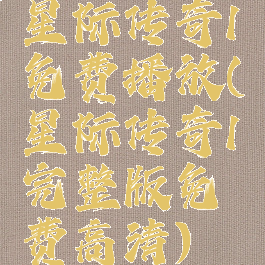 星际传奇1
免费播放(
星际传奇1
完整版免
费高清)